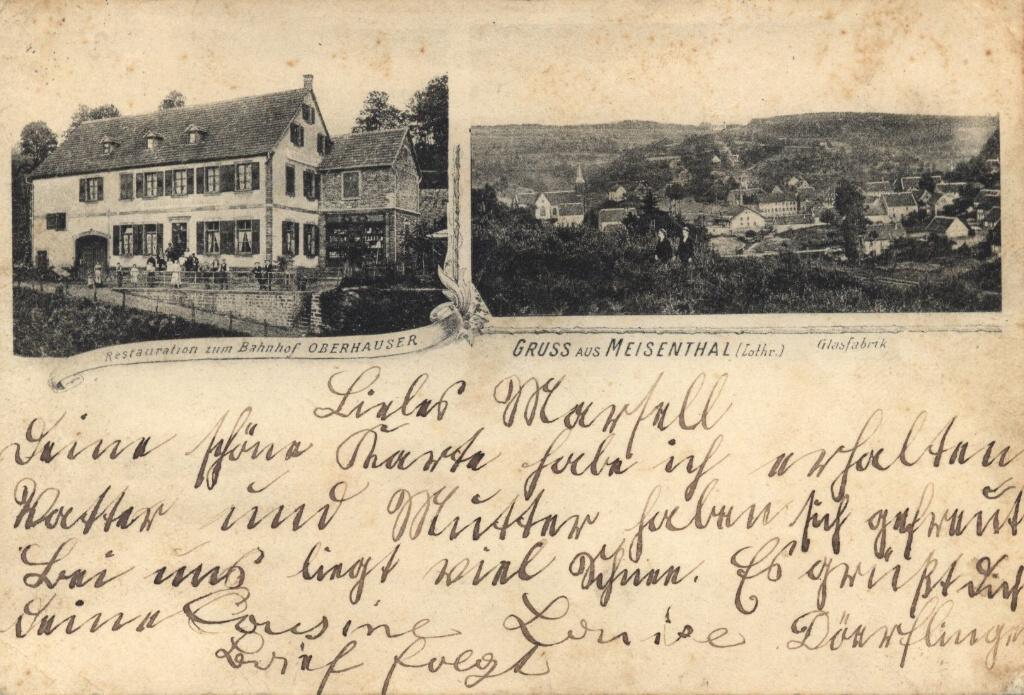 Restauration zum Bahnhof OBERHAUSER
GRUSS AUS MEISENTHAL (Lothr.)
Glasfabrik
Liebes Marsell
Deine schöne Karte habe ich erhalten
Vatter und Mutter haben sich gefreut
Bei uns liegt viel Schnee. Es grüßt dich
deine Cousine Louise Döerflinge
Brief folgt